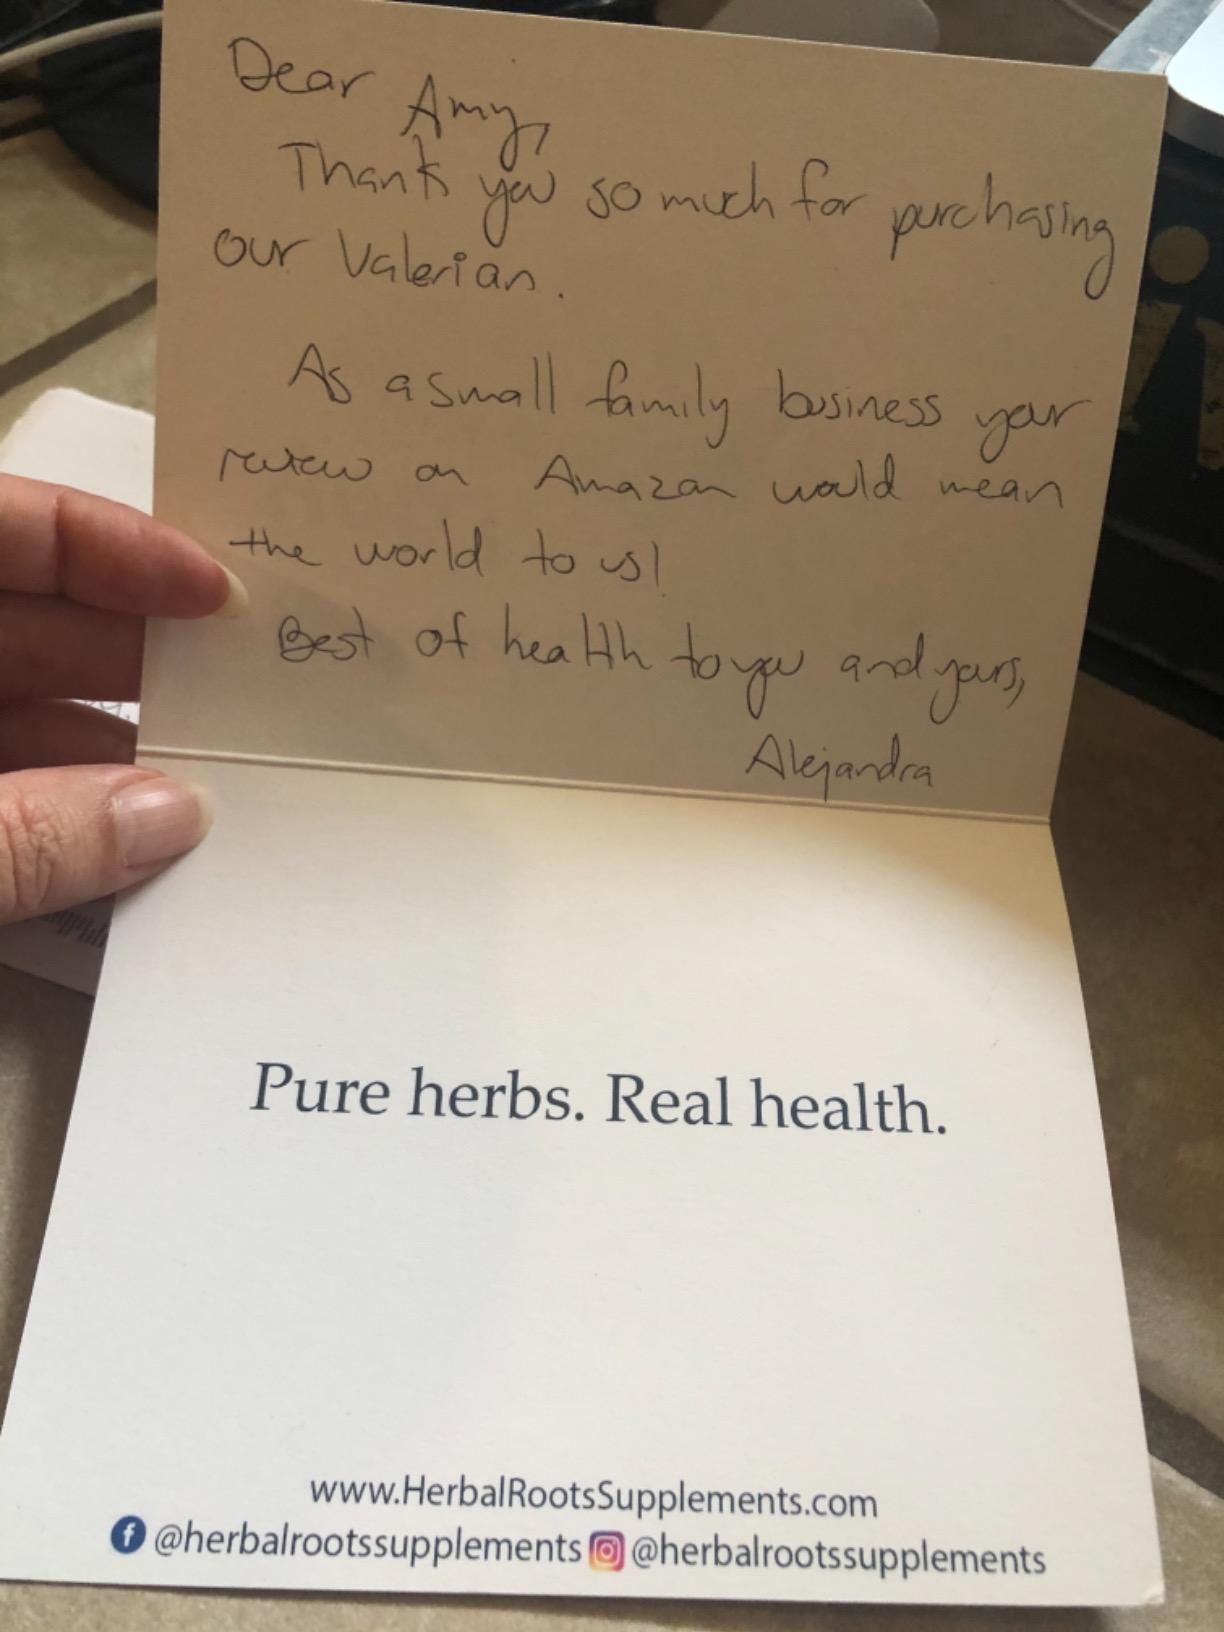 Dear Amy,
Thank you so much for purchasing
our Valerian.
As a small family business your
review on Amazon would mean
the world to us!
Best of health to you and yours,
Alejandra
Pure herbs. Real health.
www.HerbalRootsSupplements.com
@herbalrootssupplements @herbalrootssupplements